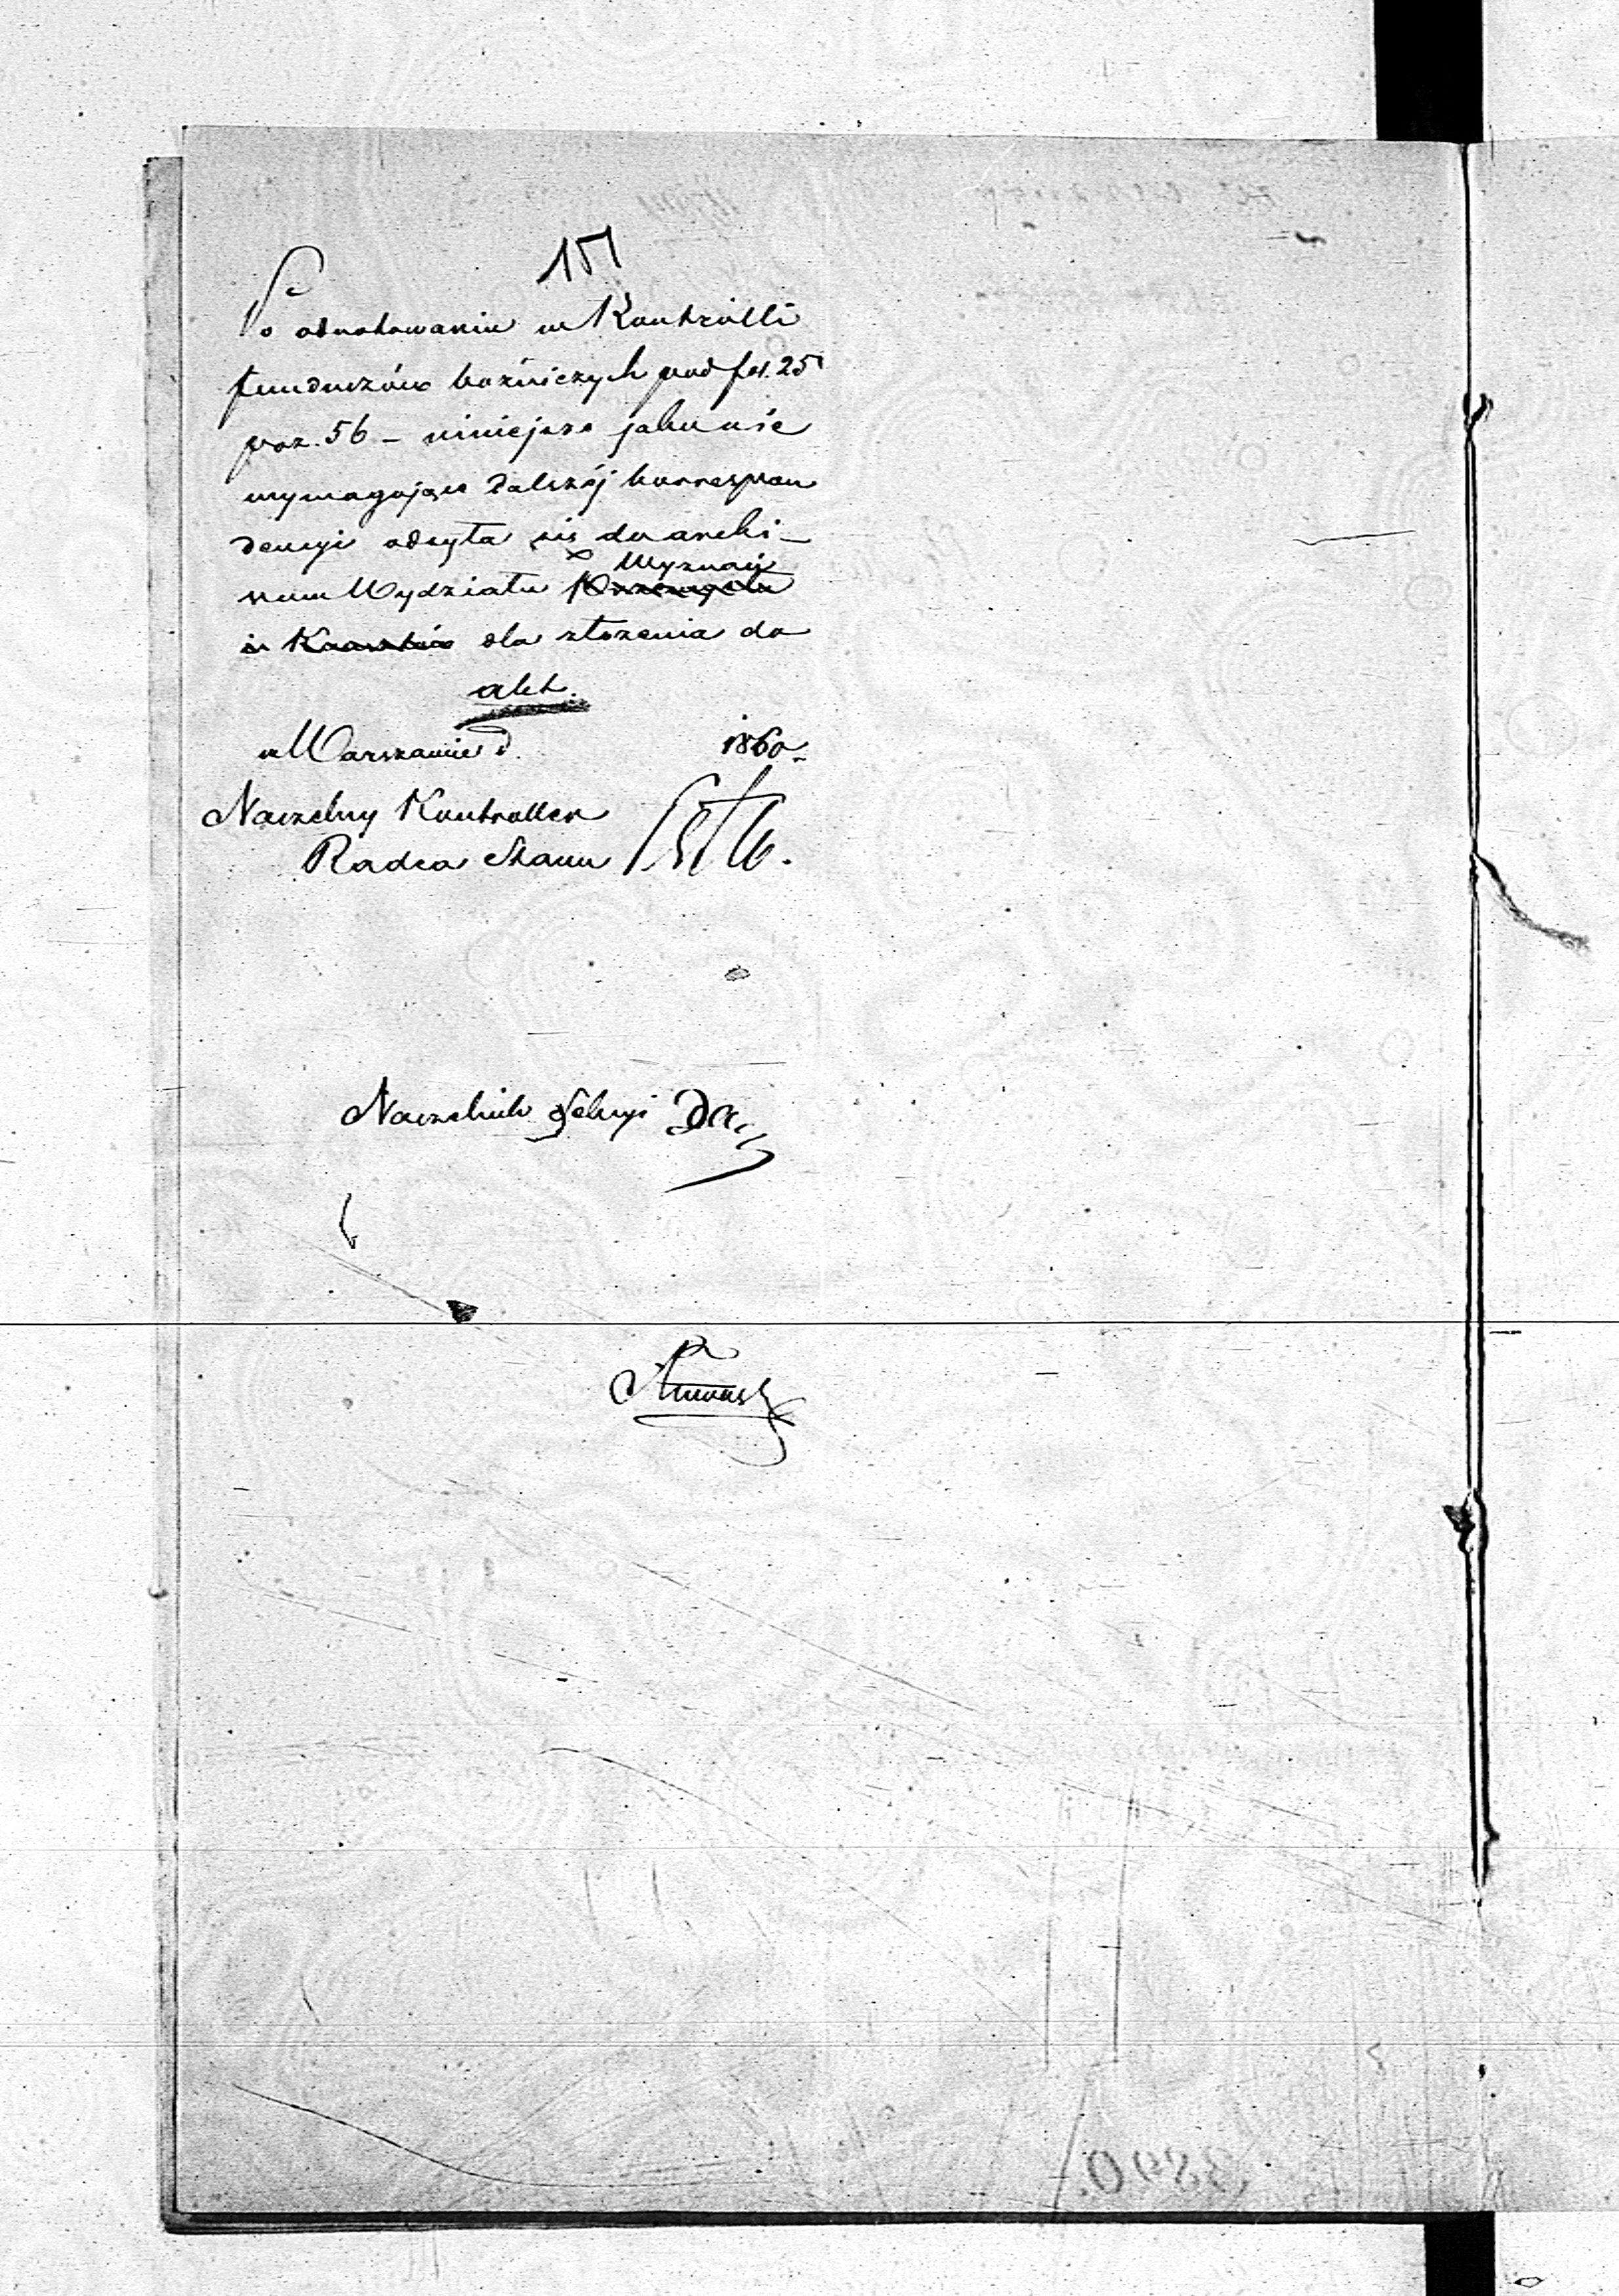 Po odnotowaniu w Kontrolli
funduszów bóżniczych pod fol. 25
poz. 56 – niniejsze jako nie
wymagające dalszéj korrespon
dencyi odsyła się do archi–
wum Wydziału Wyznań
i dla złożenia do
akt.
w Warszawie d. 1860
Naczelny Kontroller
Radca Stanu
Naczelnik Sekcyi